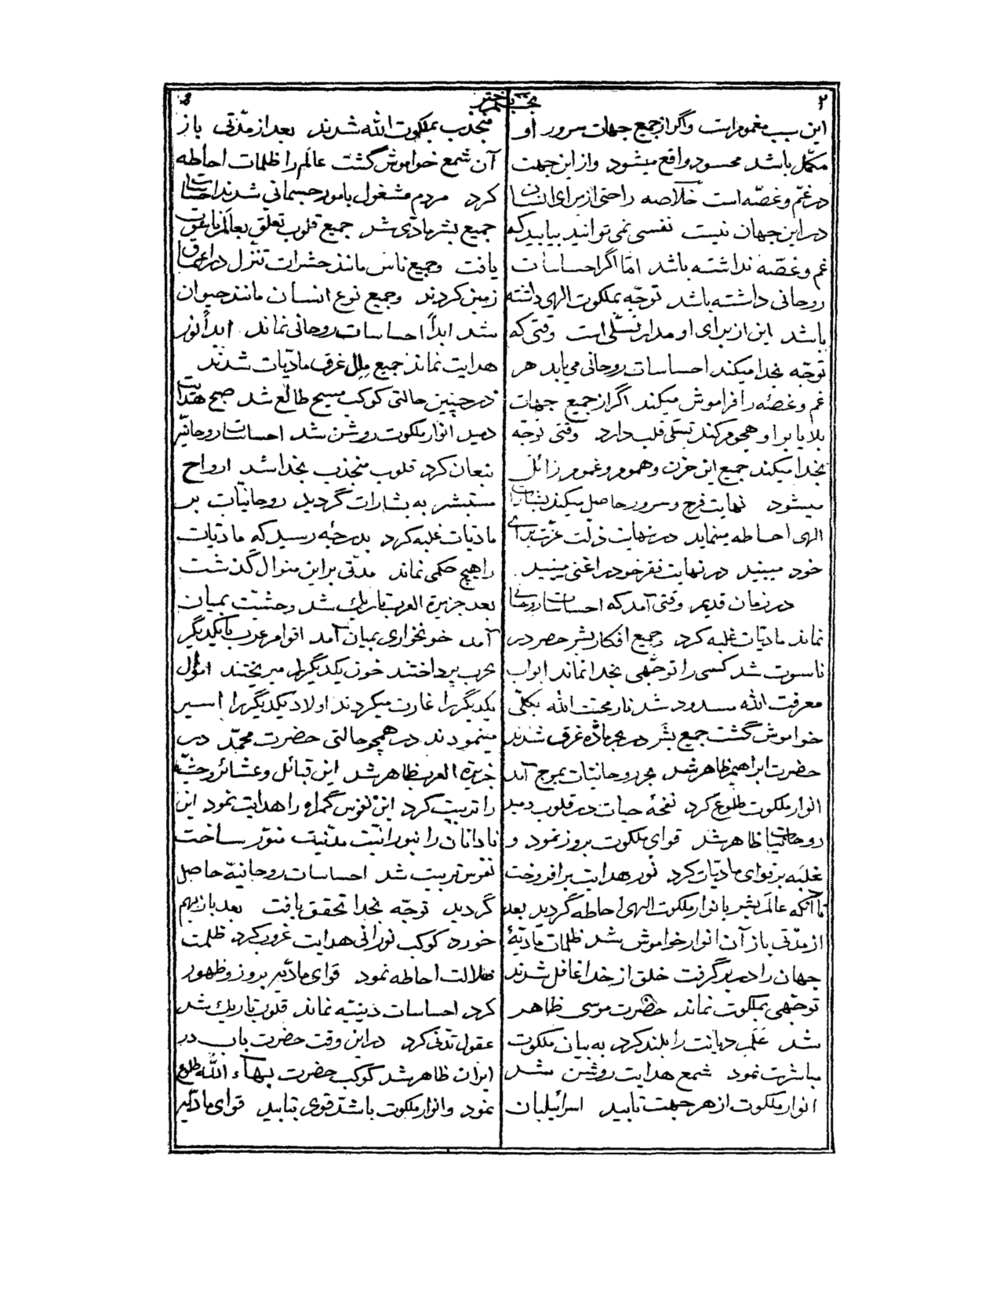 ۲
نجم باختر
۳
این سبب مغموم است و اگر از جمیع جهات سرور او
مکمّل باشد محسود واقع میشود و از این جهت
در غم و غصّه است خلاصه راحتی از برای انسان
در این جهان نیست نفسی نمی توانید بیابید که
غم و غصّه نداشته باشد امّا اگر احساسات
روحانی داشته باشد توجّه بملکوت الهی داشته
باشد این از برای او مدار تسلّی است وقتی که
توجّه بخدا میکند احساسات روحانی می‌یابد هر
غم و غصّه را فراموش میکند اگر از جمیع جهات
بلایا بر او هجوم کند تسلّی قلب دارد وقتی توجّه
بخدا میکند جمیع این حزن و هموم و غموم زائل
میشود نهایت فرح و سرور حاصل میکند بشارات
الهی احاطه مینماید در نهایت ذلّت عزّت برای
خود میبیند در نهایت فقر خود را غنی میبیند
در زمان قدیم وقتی آمد که احساسات روحانی
نماند مادیّات غلبه کرد و جمیع افکار بشر حصر در
ناسوت شد کسی را توجّهی بخدا نماند ابواب
معرفت الله مسدود شد نار محبّت الله بکلّی
خواموش گشت جمیع بشر در بحر مادّه غرق شدند
حضرت ابراهیم ظاهر شد بحر روحانیات بموج آمد
انوار ملکوت طلوع کرد نفحهٔ حیات در قلوب دمید
روحانیات ظاهر شد قوای ملکوت بروز نمود و
غلبه بر قوای مادیّات کرد نور هدایت برافروخت
تا آنکه عالم بشر را انوار ملکوت الهی احاطه گردید بعد
از مدّتی باز آن انوار خواموش شد ظلمات مادیّهٔ
جهان را در بر گرفت خلق از خدا غافل شدند
توجّهی بملکوت نماند حضرت موسی ظاهر
شد علم دیانت را بلند کرد به بیان ملکوت
مباشرت نمود شمع هدایت روشن شد
انوار ملکوت از هر جهت تابید اسرائیلیان
منجذب بملکوت الله شدند بعد از مدّتی باز
آن شمع خواموش گشت عالم را ظلمات احاطه
کرد مردم مشغول بامور جسمانی شدند احساسات
جمیع بشر مادّی شد جمیع قلوب تعلّق بعالم ناسوت
یافت و جمیع ناس مانند حشرات تنزّل در اعماق
زمین کردند و جمیع نوع انسان مانند حیوان
شد ابداً احساسات روحانی نماند ابداً نور
هدایت نماند جمیع ملل غرق مادیّات شدند
در چنین حالتی کوکب مسیح طالع شد صبح هدایت
دمید انوار ملکوت روشن شد احساسات روحانیّه
نبعان کرد قلوب منجذب بخدا شد ارواح
مستبشر به بشارات گردید روحانیّات بر
مادیّات غلبه کرد بدرجهٔ رسید که مادیّات
را هیچ حکمی نماند مدّتی بر این منوال گذشت
بعد جزیرة العرب تاریک شد وحشیّت بمیان
آمد خونخواری بمیان آمد اقوام عرب با یکدیگر
بحرب پرداختند خون یکدیگر را میریختند اموال
یکدیگر را غارت میکردند اولاد یکدیگر را اسیر
مینمودند در همچو حالتی حضرت محمّد در
جزیرة العرب ظاهر شد این قبائل و عشائر وحشیّه
را تربیت کرد این نفوس گمراه را هدایت نمود این
نادانان را بنورانیّت مدنیّت منوّر ساخت
نفوس تربیت شد احساسات روحانیّه حاصل
گردید توجّه بخدا تحقّق یافت بعد باز بهم
خورد کوکب نورانی هدایت غروب کرد ظلمت
ضلالت احاطه نمود قوای مادیّه بروز و ظهور
کرد احساسات دینیّه نماند قلوب تاریک شد
عقول تدنّی کرد در این وقت حضرت باب در
ایران ظاهر شد کوکب حضرت بهاء الله طلوع
نمود و انوار ملکوت باشدّ قوی بتابید قوای مادیّه